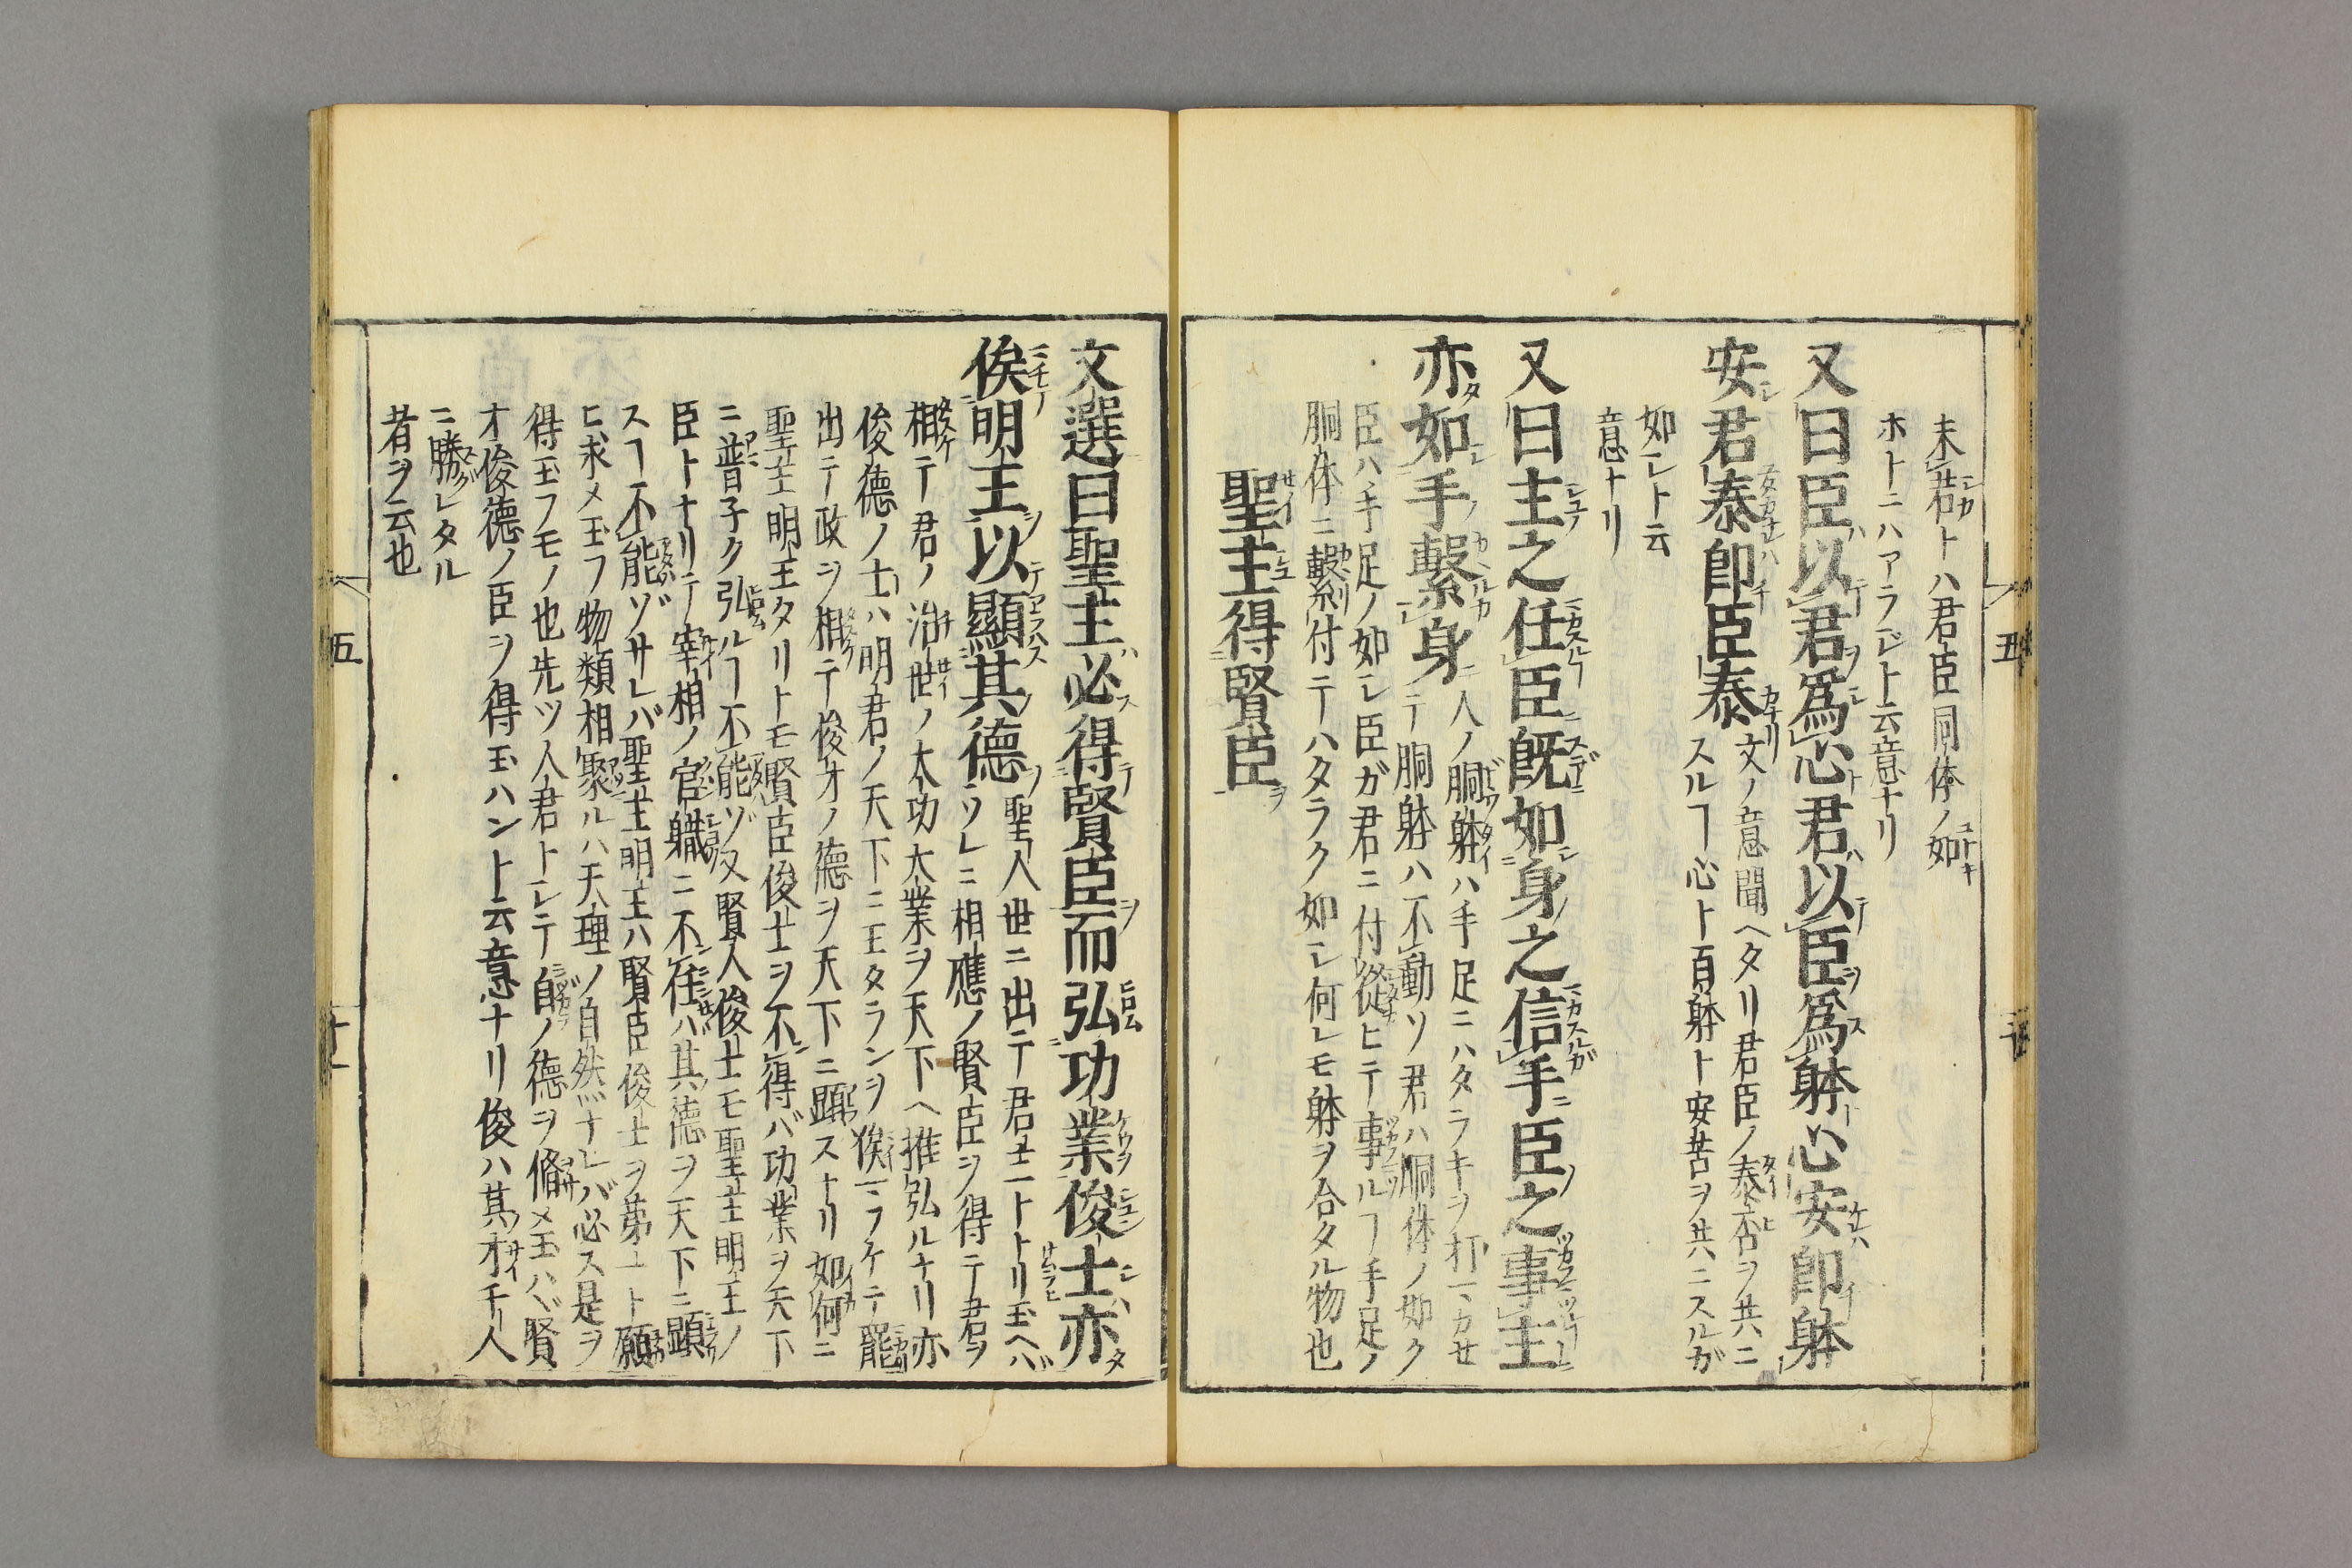 未若トハ君臣同体ノ如
ホトニハアラジト云意ナリ
又曰臣以君爲心君以臣爲躰心安卽躰
安君泰卽臣泰
文ノ意聞ヘタリ君臣ノ泰否ヲ共ニ
スルヿ心ト百躰ト安苦ヲ共ニスルガ
如シト云
意ナリ
又曰主之任臣既如身之信手臣之事主
亦如手繫身
人ノ胴躰ハ手足ニハタラキヲ打マカせ
テ胴躰ハ不動ソ君ハ胴体ノ如ク
臣ハ手足ノ如シ臣ガ君ニ付從ヒテ事ルヿ手足ノ
胴体ニ繫付テハタラク如シ何レモ躰ヲ合タル物也
聖主得賢臣
文選曰聖主必得賢臣而弘功業俊士亦
俟明王以顯其德
聖人世ニ出テ君主トナリ玉ヘバ
ソレニ相應ノ賢臣ヲ得テ君ヲ
相テ君ノ治世ノ大功大業ヲ天下ヘ推弘ルナリ亦
俊德ノ士ハ明君ノ天下ニ王タランヲ俟マフケニ罷
出テ政ヲ相テ俊才ノ德ヲ天下ニ顕スナリ如何ニ
聖主明王タリトモ賢臣俊士ヲ不得バ功業ヲ天下
ニ普子ク弘ルヿ不能ゾ又賢人俊士モ聖主明王ノ
臣トナリテ宰相ノ官職ニ不任ハ其德ヲ天下ニ顕
スヿ不能ゾサレバ聖主明王ハ賢臣俊士ヲ第一ト願
ヒ求メ玉フ物類相聚ルハ天理ノ自然ナレバ必ス是ヲ
得玉フモノ也先ツ人君トシテ自ノ德ヲ脩メ玉ハヾ賢
才俊德ノ臣ヲ得玉ハント云意ナリ俊ハ其才千人
ニ勝レタル
者ヲ云也
五
十一